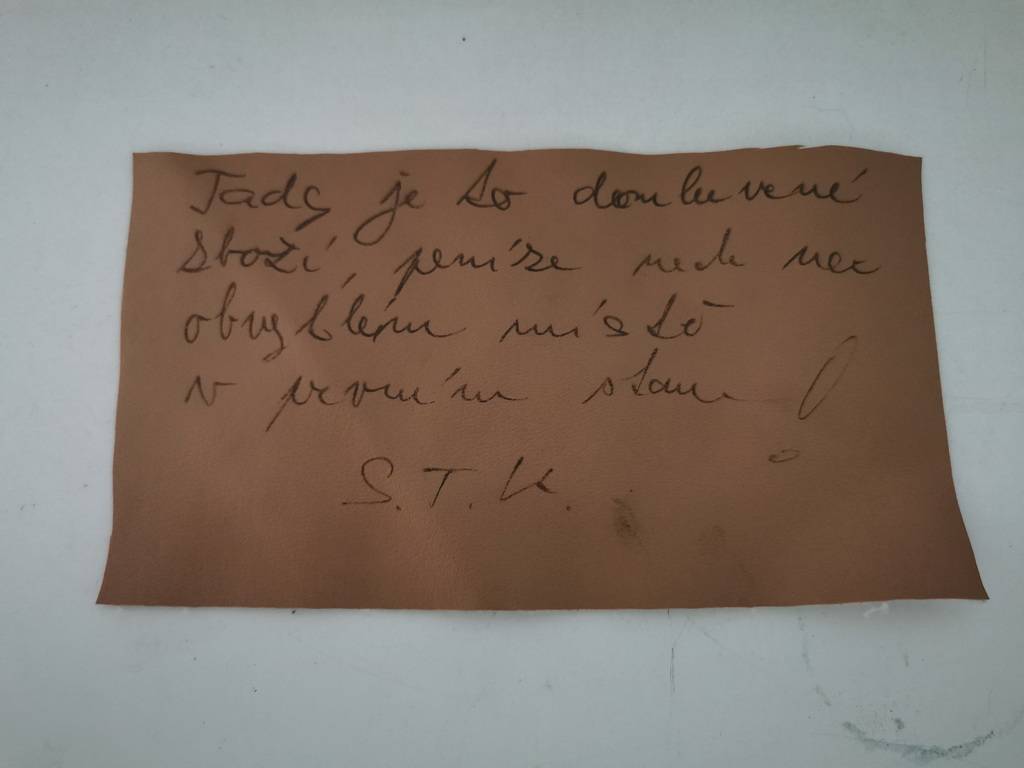 Tady je to domluvené
zboží, peníze nech na
obvyklém místě
v prvním stanu!
S.T.K.